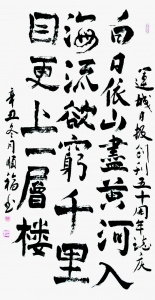 運城日报創刊五十周年誌庆
白日依山盡黄河入
海流欲窮千里
目更上一層樓
辛丑冬月順福书